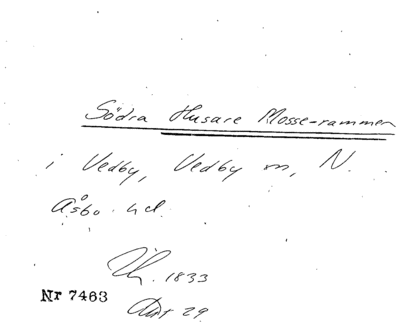 Södra Husare Mosse-rammen
i Vedby, Vedby sn, N.
Åsbo hd.
1833
Nr 7463
Akt 29